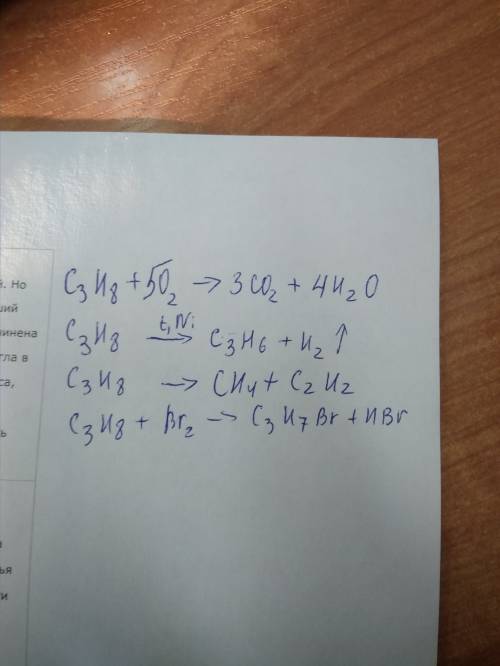 й. Но
ший
чинена
гла в
са,
ь
C₃H₈ + 5O₂ → 3CO₂ + 4H₂O
C₃H₈ t, Ni → C₃H₆ + H₂↑
C₃H₈ → CH₄ + C₂H₂
C₃H₈ + Br₂ → C₃H₇Br + HBr
а
ья
ти